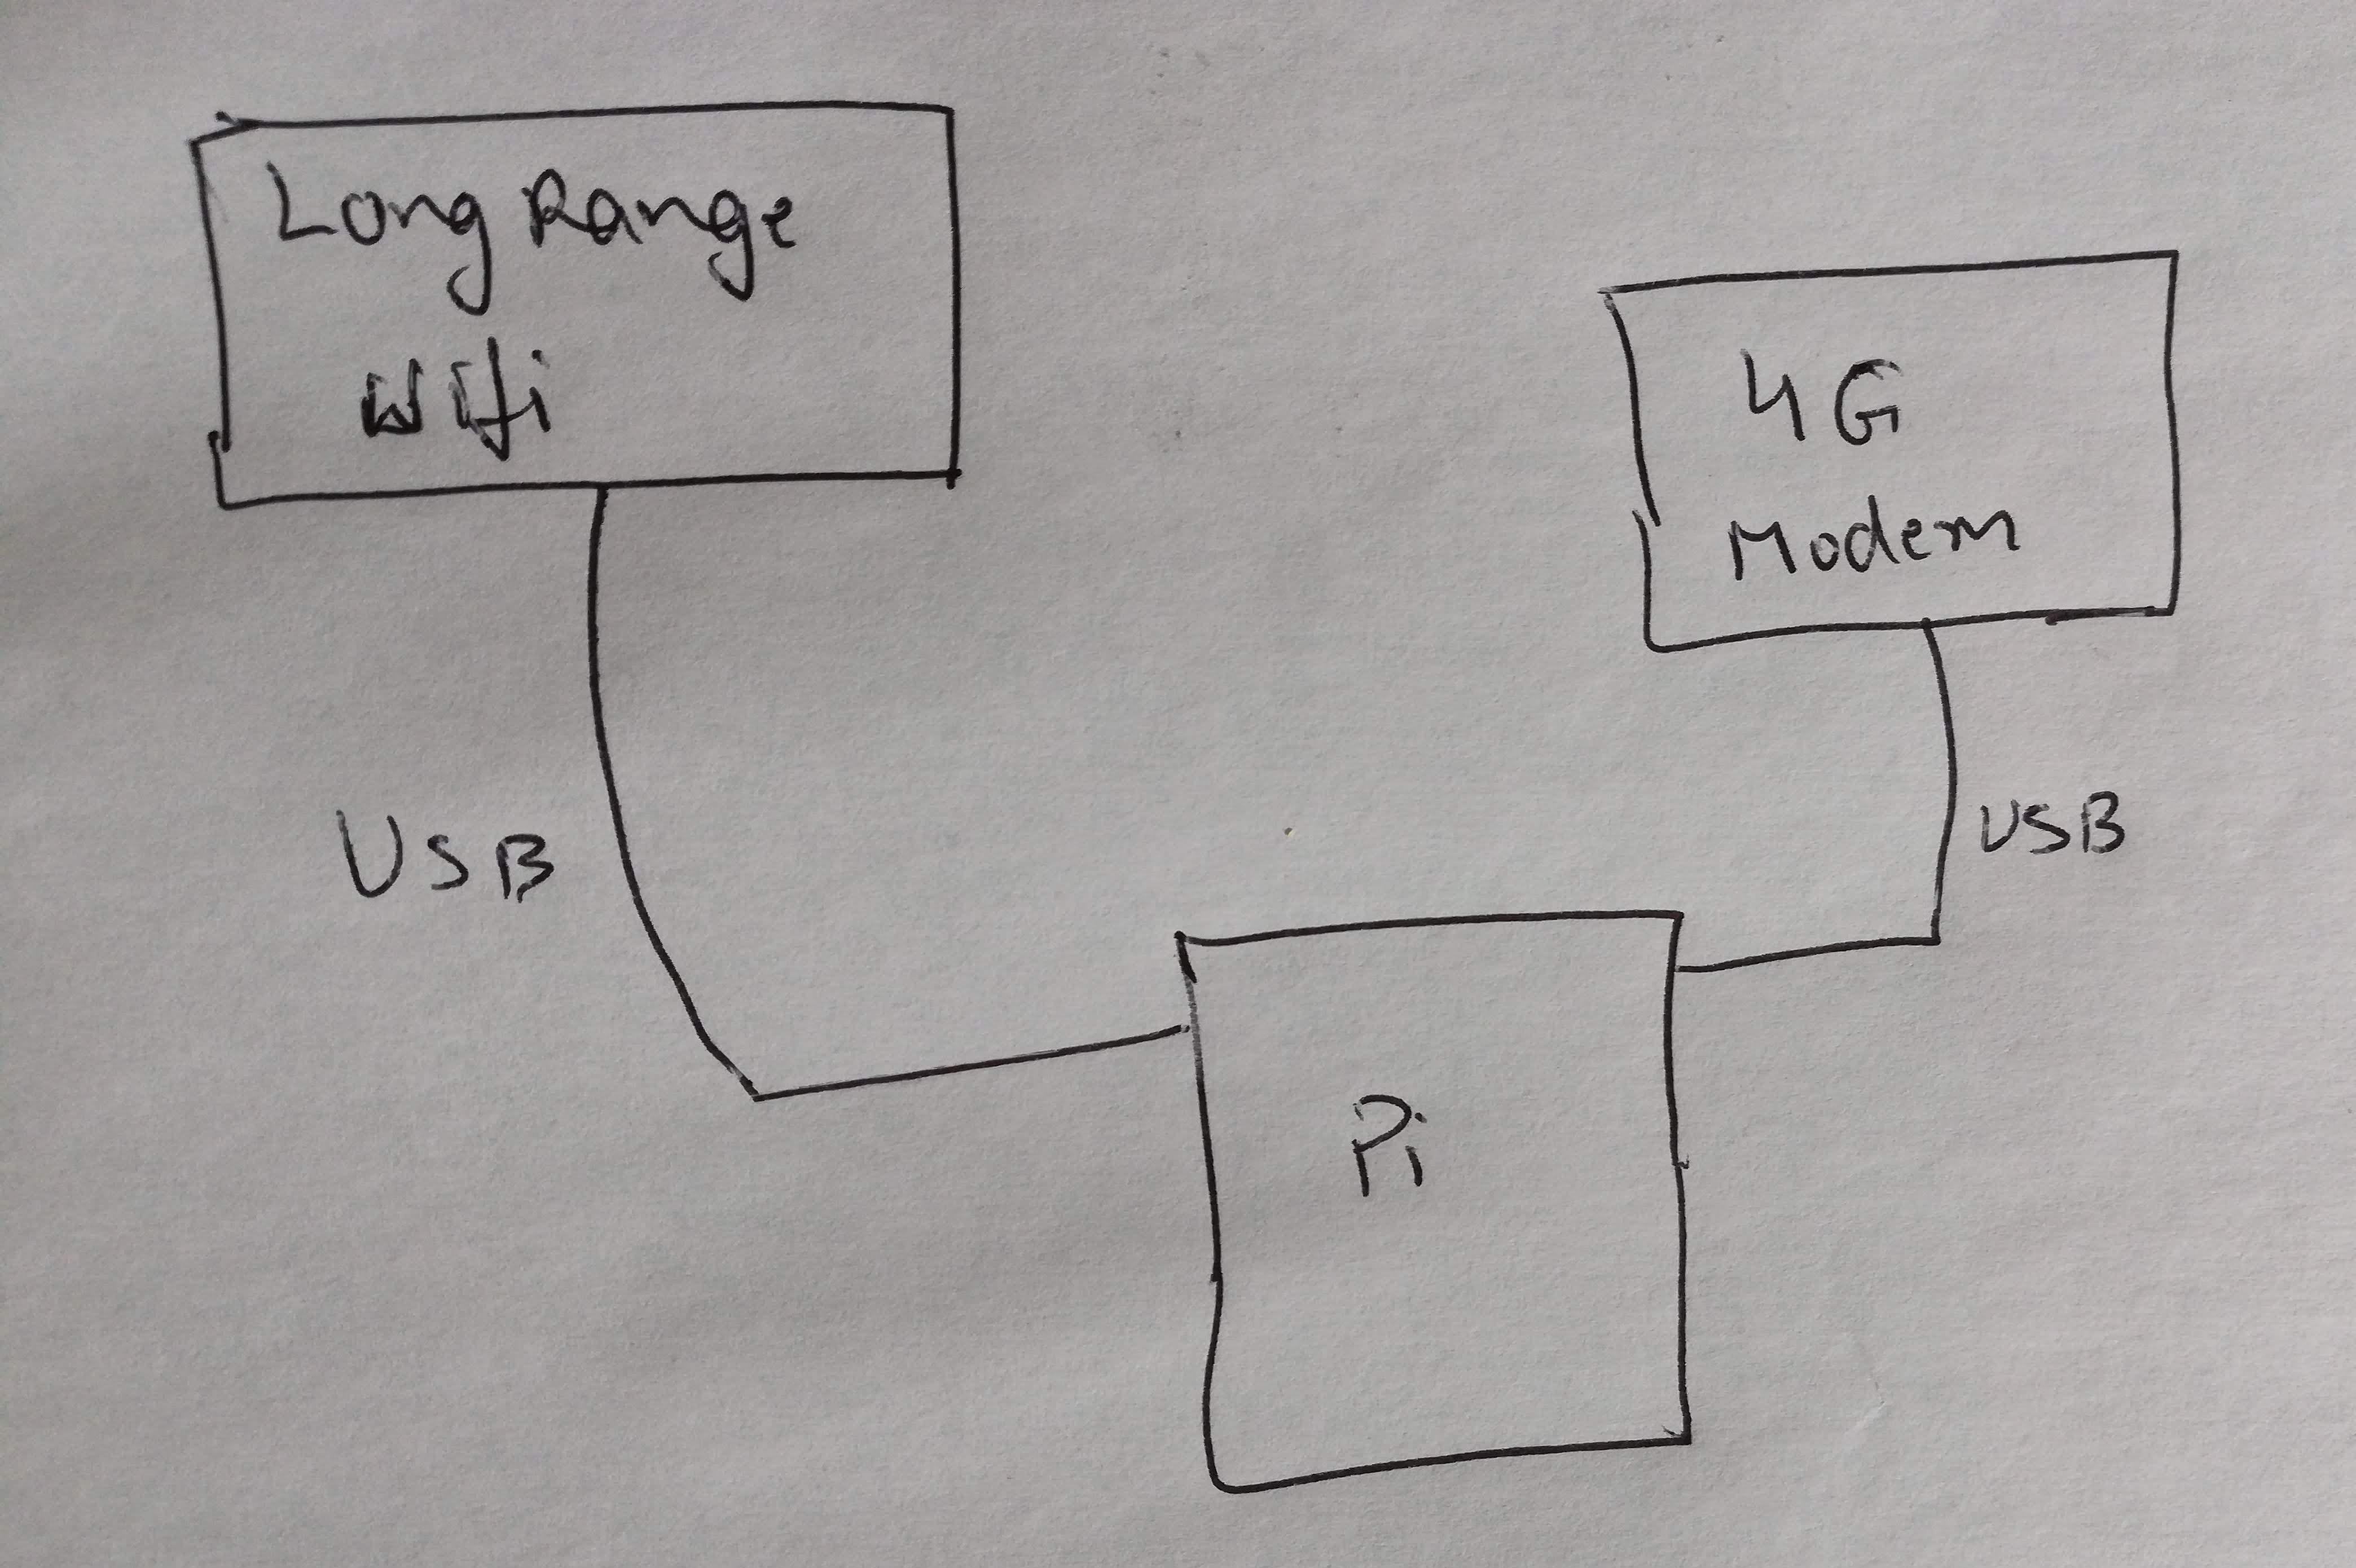 Long Range
Wifi
4G
Modem
USB
USB
Pi